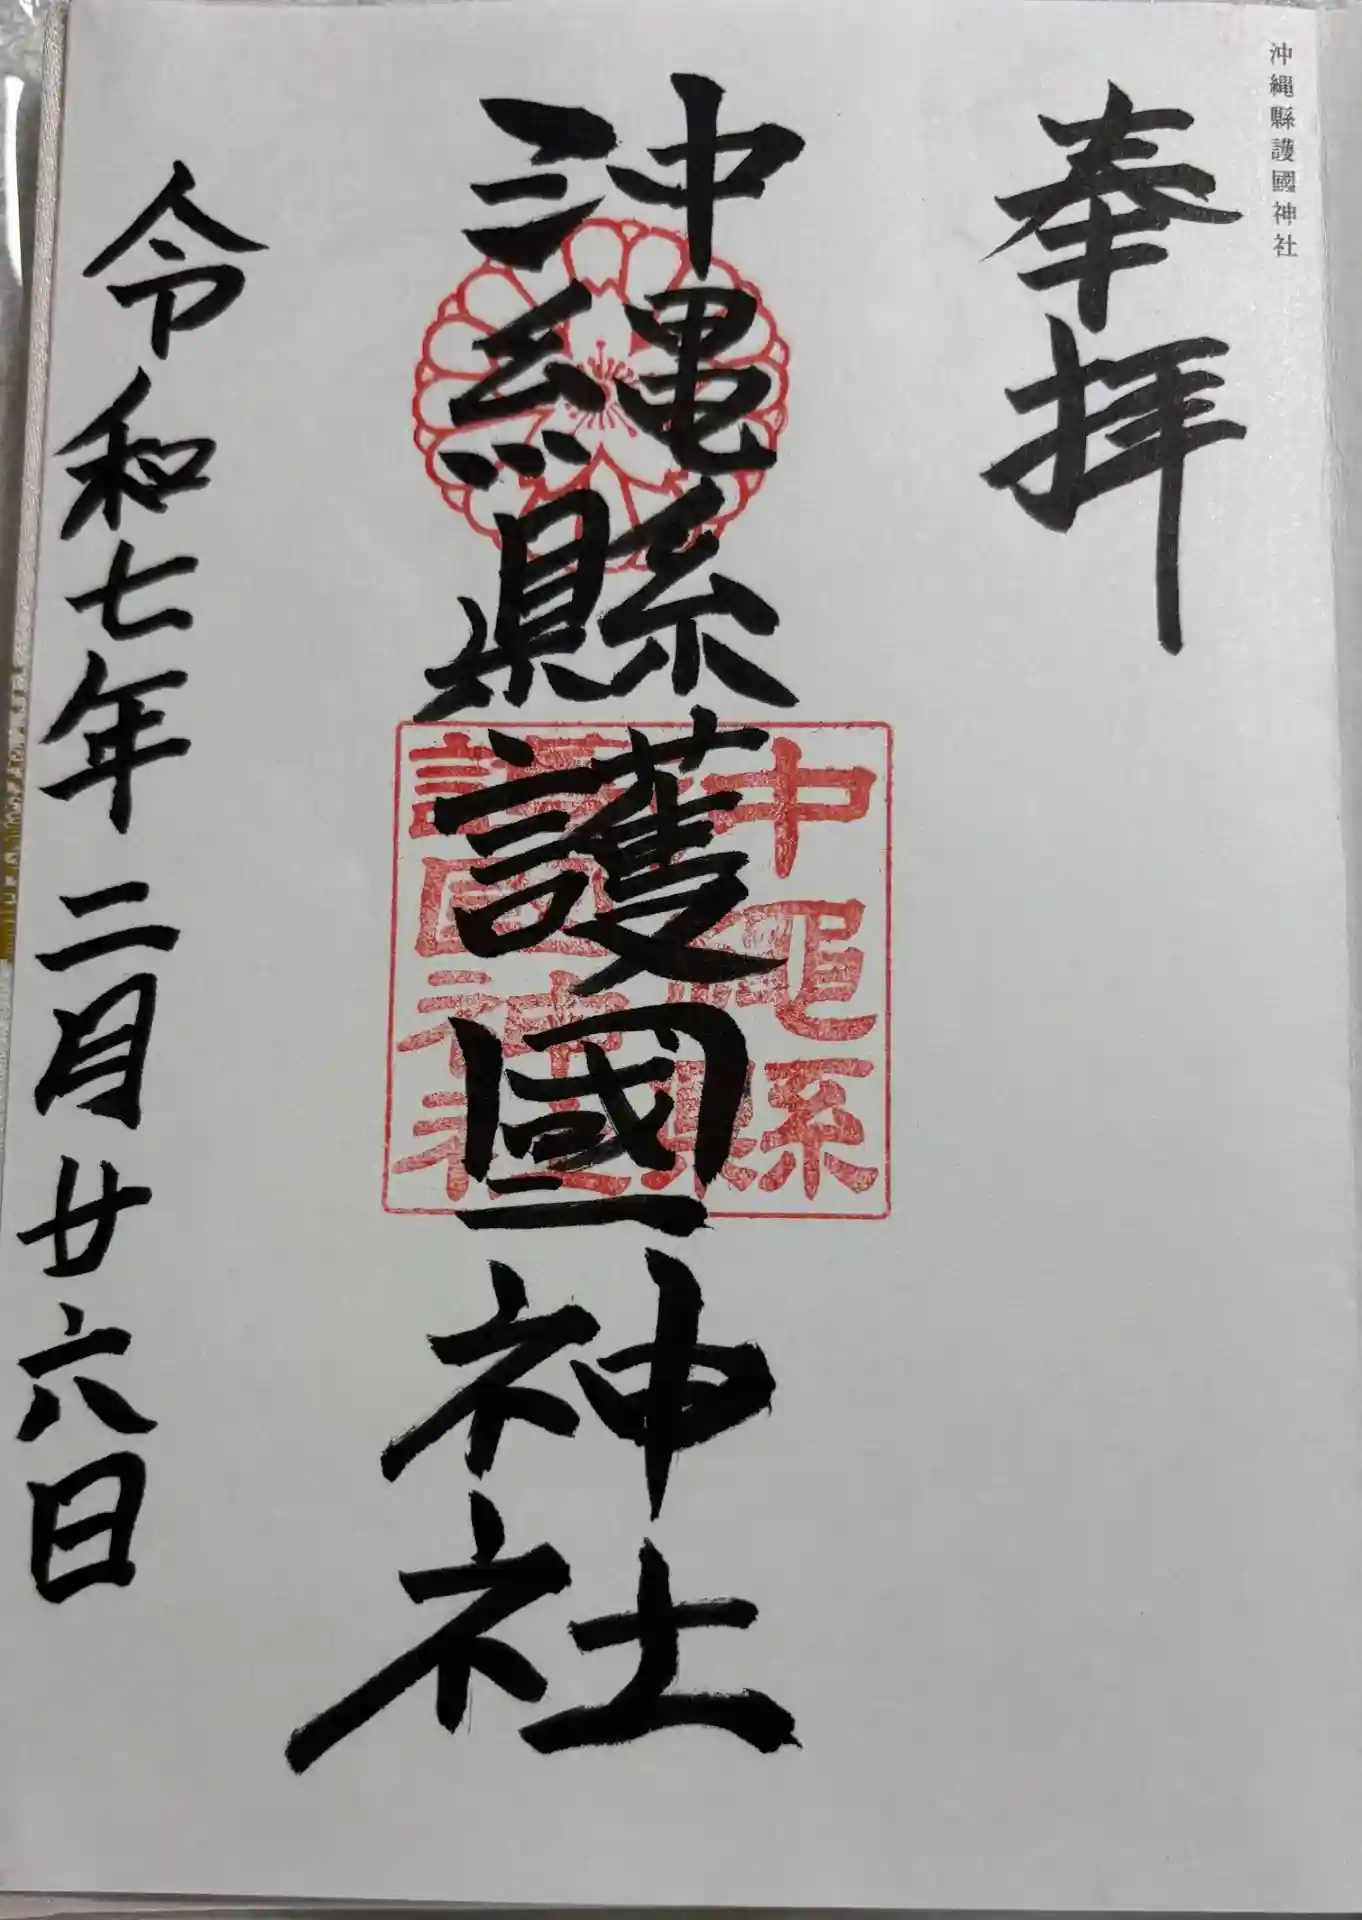 沖縄縣護國神社
奉拝
沖縄縣護國神社
沖縄縣
護國神社
令和七年二月廿六日